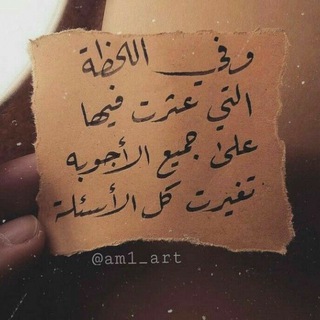 وفي اللحظة
التي عثرت فيها
على جميع الأجوبه
تغيرت كل الأسئلة
@am1_art